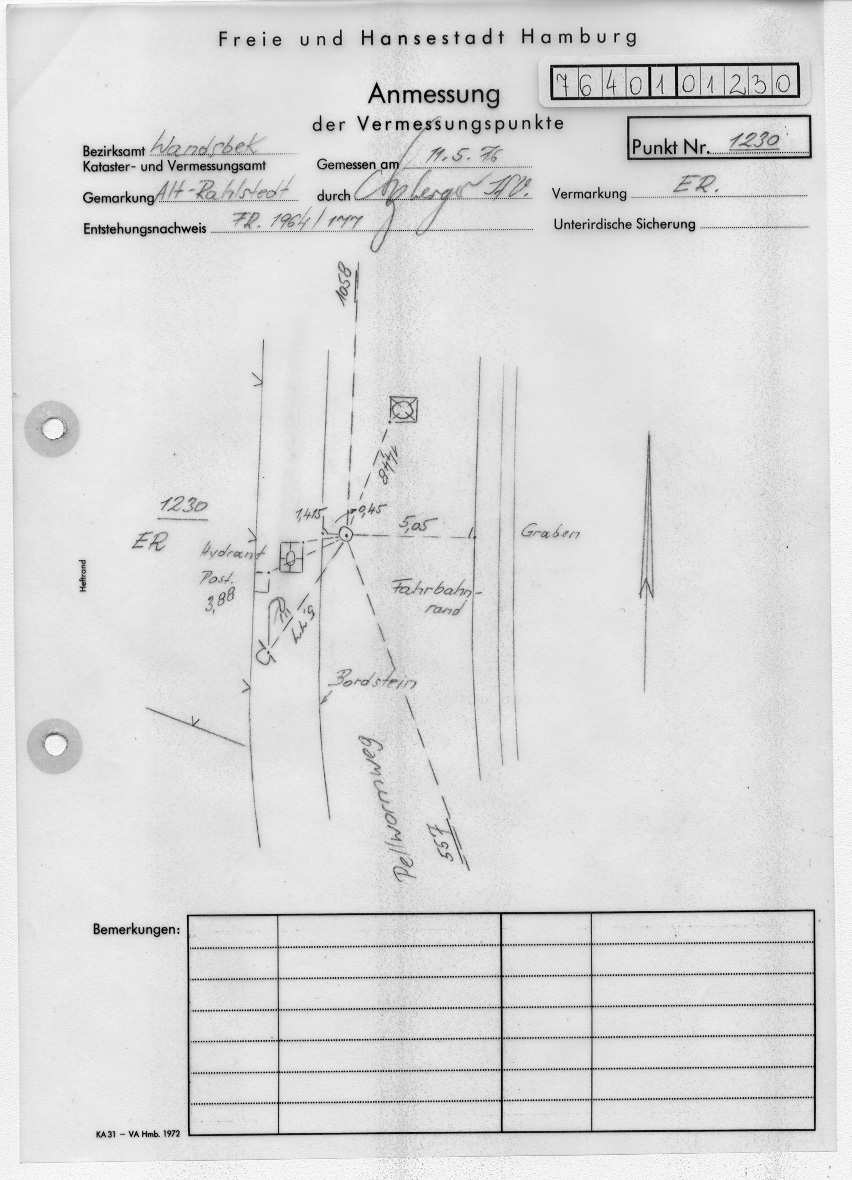 Freie und Hansestadt Hamburg
76401 01230
Anmessung
der Vermessungspunkte
Punkt Nr. 1230
Bezirksamt Wandsbek
Kataster- und Vermessungsamt
Gemessen am 11.5.76
Gemarkung Alt-Rahlstedt
durch
Vermarkung ER.
Entstehungsnachweis FR. 1964/177
Unterirdische Sicherung
1058
1230
ER
1,415
9,45
5,05
Graben
Hydrant
Post.
3,88
Fahrbahn-
rand
Bordstein
Pellwormweg
557
Heftrand
Bemerkungen:
KA 31 – VA Hmb. 1972